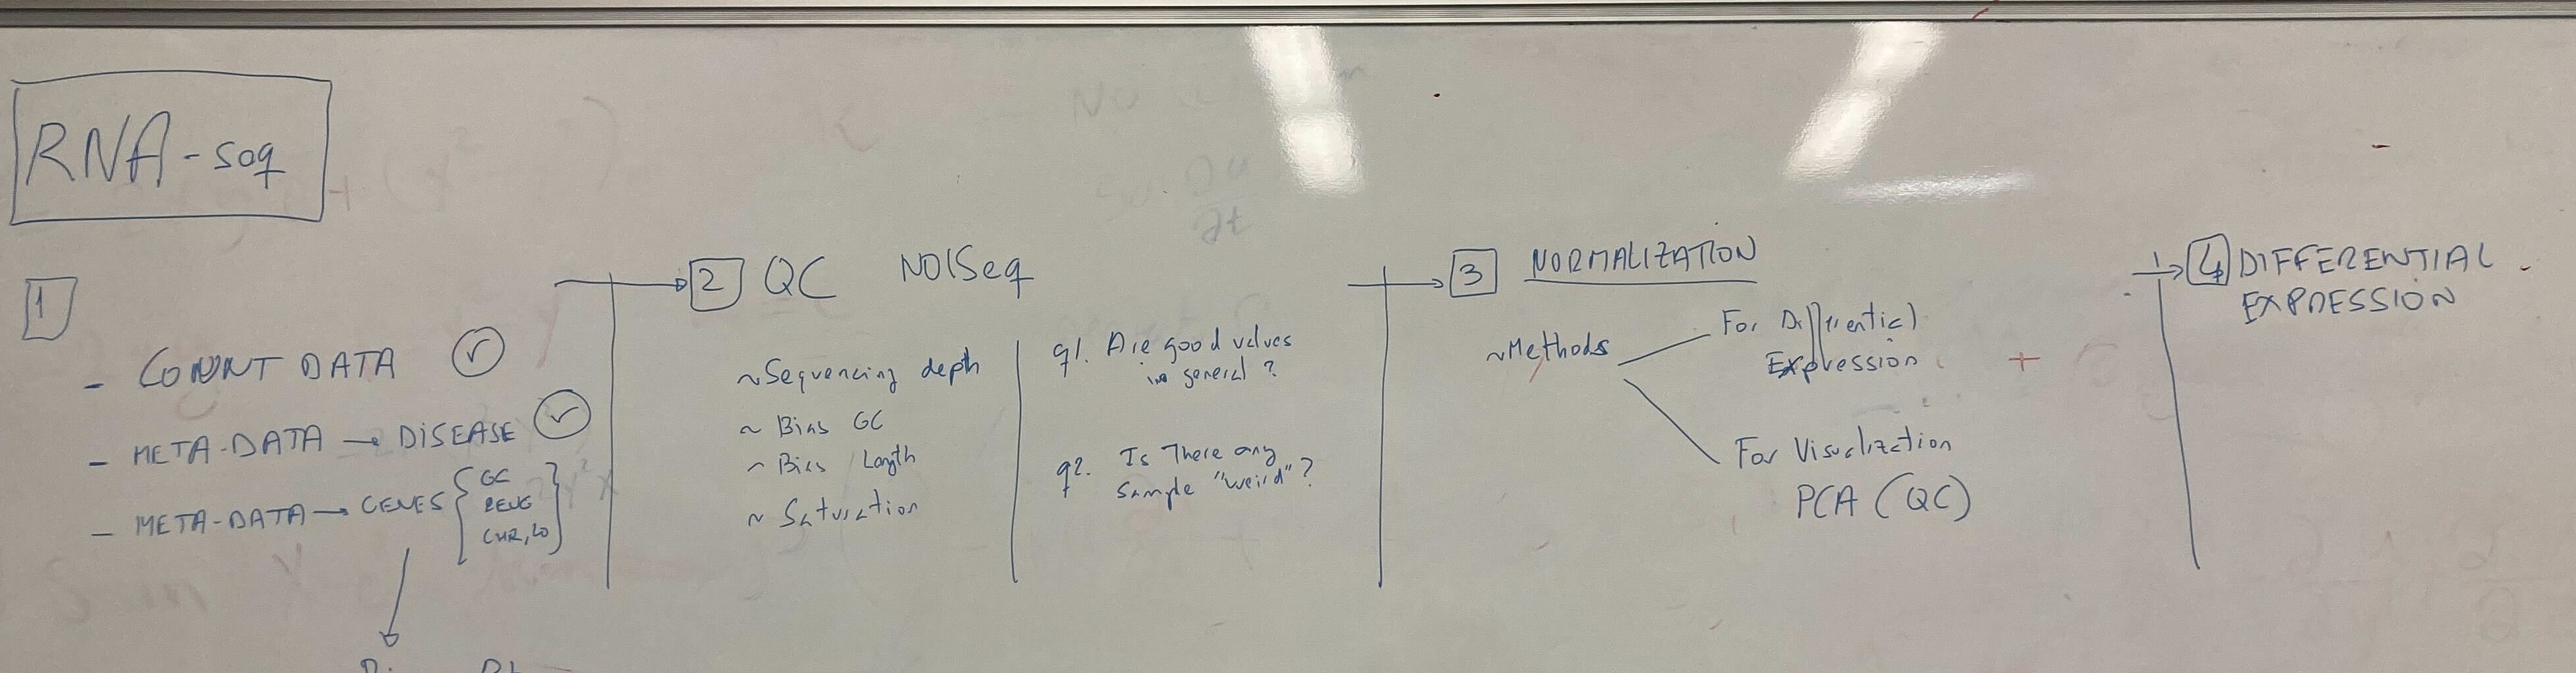 RNA-seq
1
- COUNT DATA
- META-DATA → DISEASE
- META-DATA → GENES
GC
CHR,
2 QC NOISeq
~Sequencing depth
~ Bias GC
~ Bias Length
~ Saturation
q1. Are good values
in general ?
q2. Is There any
Sample "weird"?
3 NORMALIZATION
~Methods
For Differential
Expression
For Visualization
PCA (QC)
4 DIFFERENTIAL
EXPRESSION